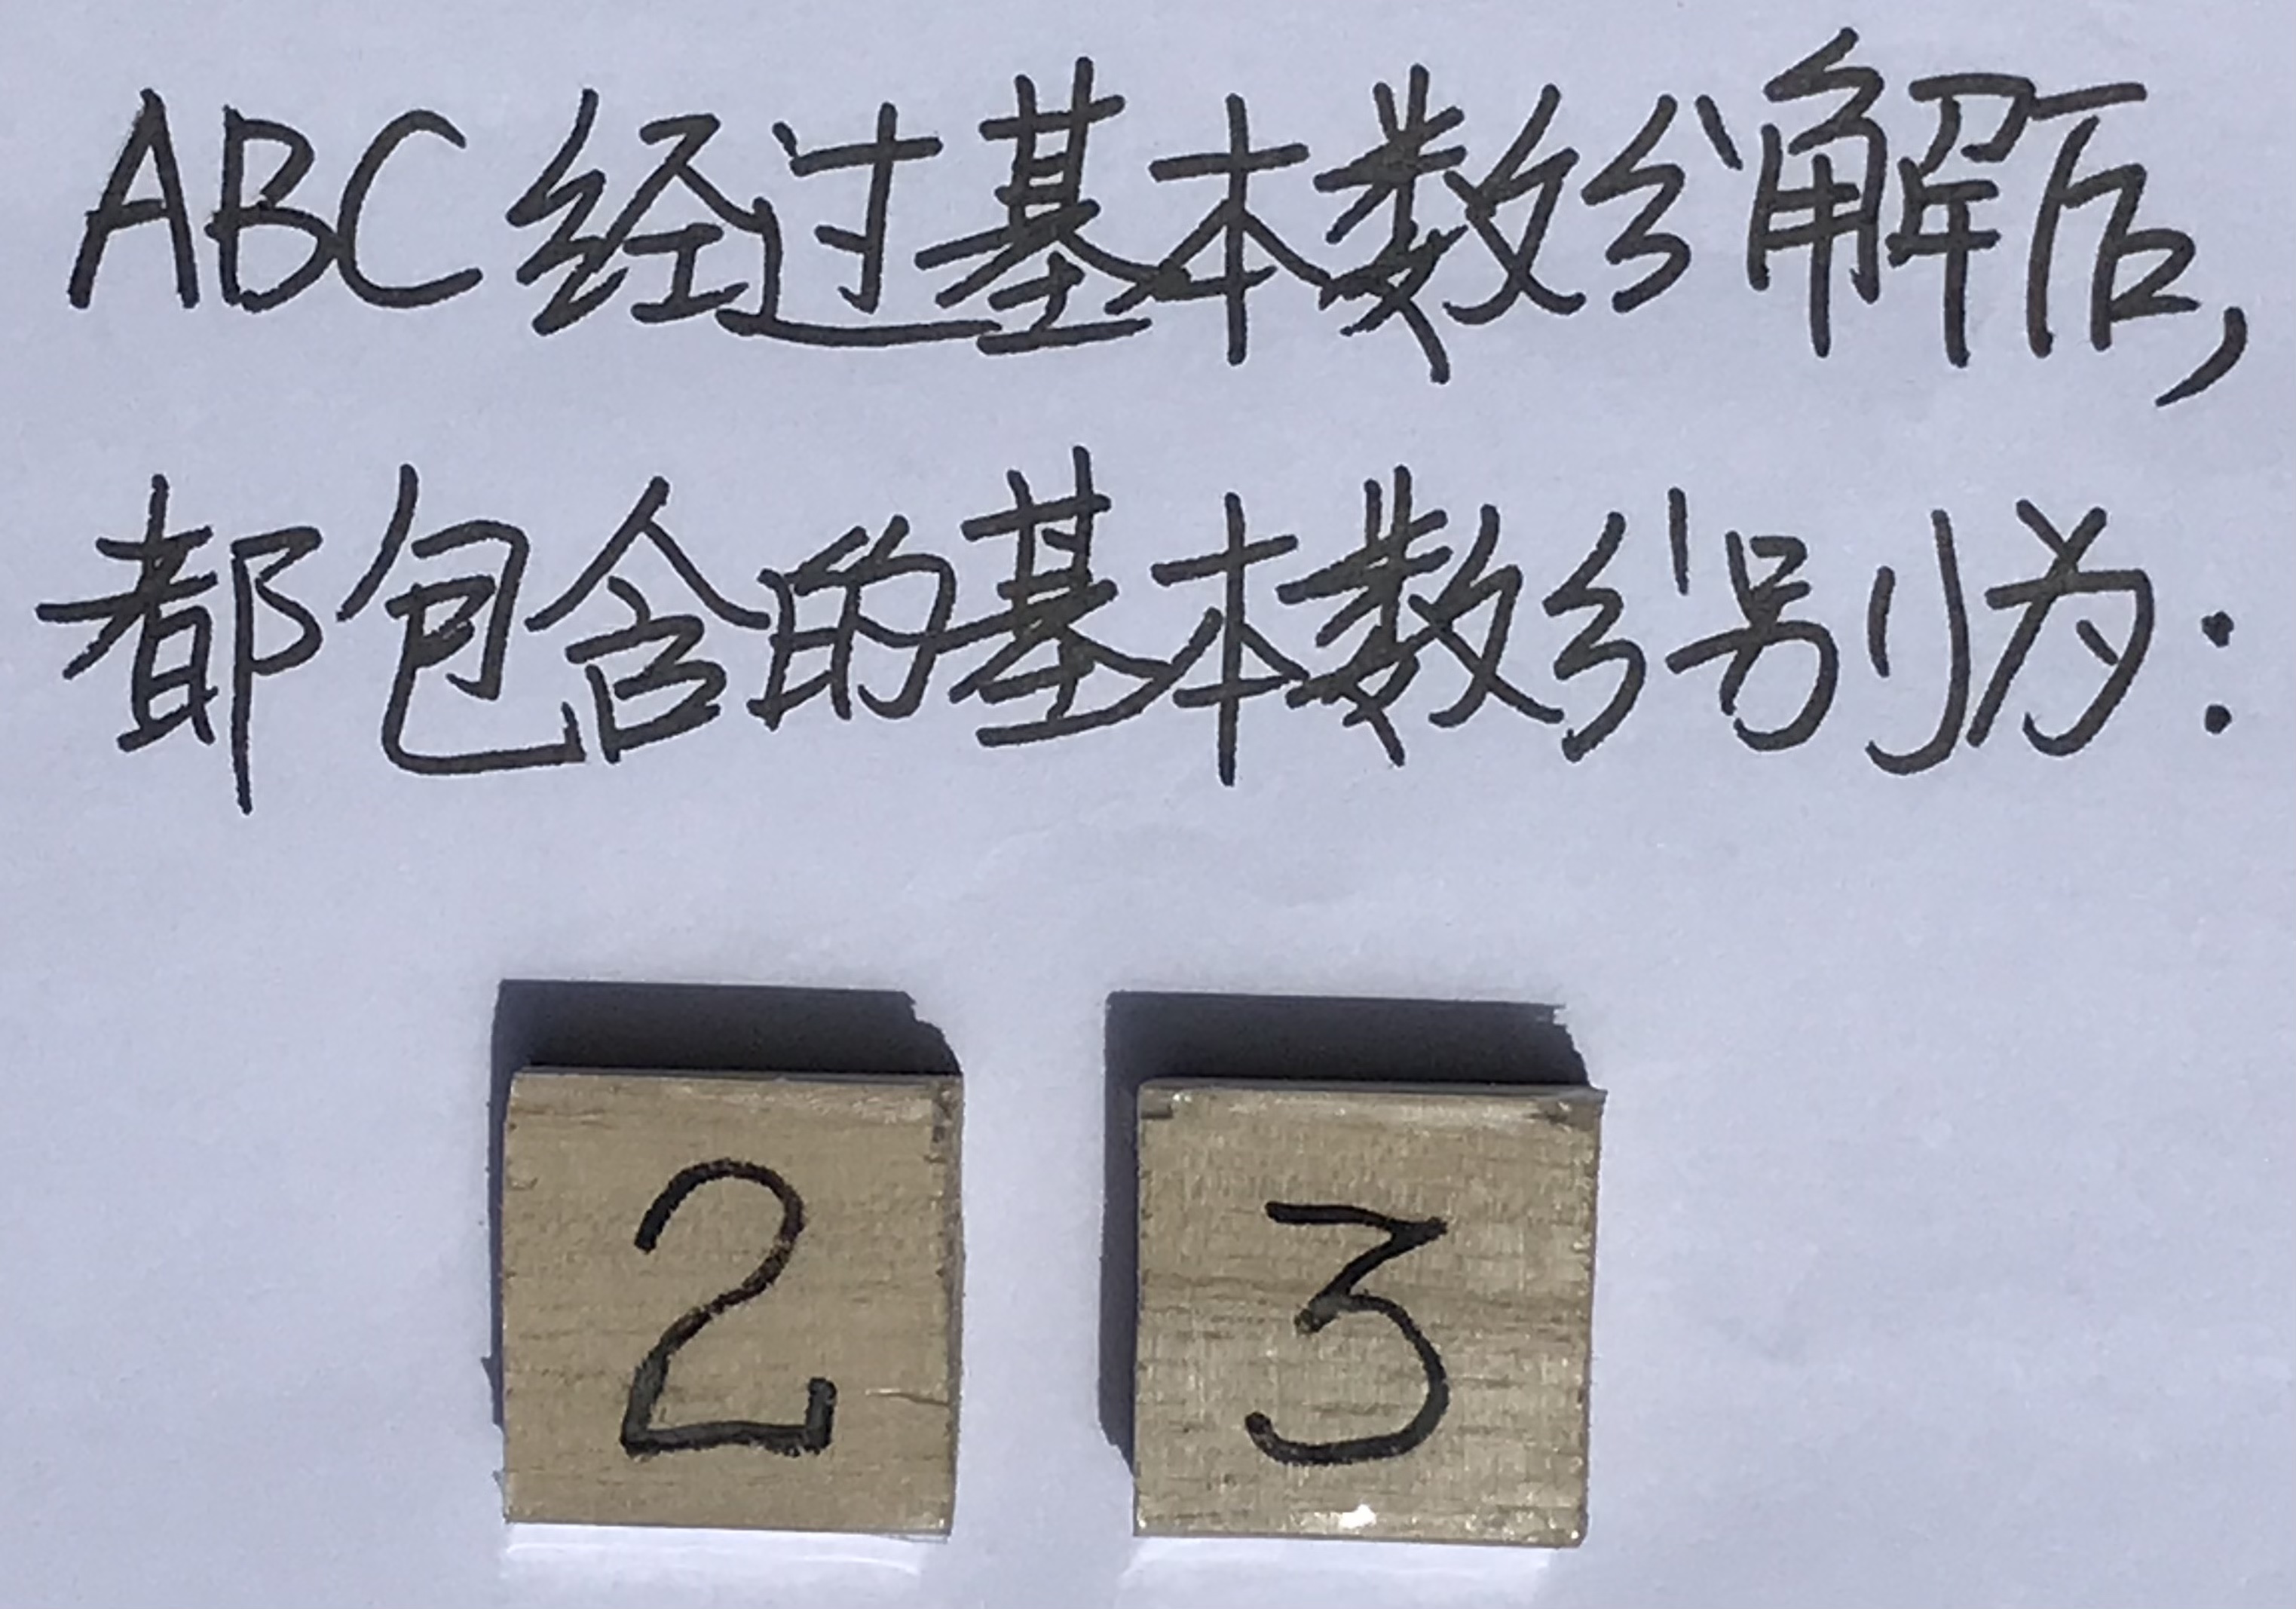 ABC经过基本数分解后,
都包含的基本数分别为:
2 3